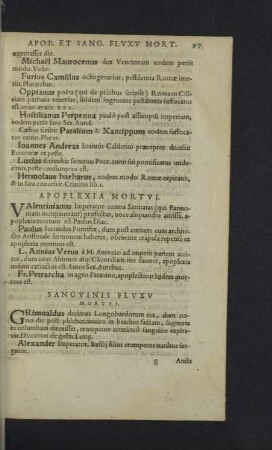 APOP. ET SANG. FLVXV MORT. 97
ægrotasset die.
Michaël Maurocenus dux Venetorum eodem periit
modo. Volat.
Furius Camillus octogenarius, pestilentia Romæ interiit. Plutarchus.
Oppianus poëta (qui de piscibus scripsit) Roma in Ciliciam patriam reuersus, ibidem ingruente pestilentia suffocatus
est, anno ætatis xxx.
Hostilianus Perpenna paulò post assumpsit imperium,
eodem periit fato. Sex. Aurel.
Cæleus scribit Paralium & Xantippum eodem suffocatos exitio. Plutar.
Ioannes Andreas Ioannis Calderini præceptor decessit
Bononiæ ex peste.
Lucius secundus summus Pont. anno sui pontificatus undecimo, peste consumptus est.
Hermolaus barbarus, eodem modo Romæ expirauit,
& in fata concessit. Crinitus lib. 1.
APOPLEXIA MORTVI.
VAlentinianus Imperator contra Sarmatas (qui Pannoniam occupauerant) profectus, uoce aliquandiu amissa, apoplexia mortuus est. Paulus Diac.
Paulus Secundus Pontifex, dum post coenam cum architecto Aristotele sermonem haberet, oboriente crapula repente ex
apoplexia mortuus est.
L. Annius Verus à M. Antonio ad imperij partem accitus, dum inter Altinum atque Concordiam iter faceret, apoplexia
eiusdem extinctus est. Autor Sex. Aurelius.
Fr. Petrarcha in agro Patauino, apoplecticus ijsdem mortuus est.
SANGVINIS FLVXV
MORTVI.
GRimoaldus decimus Longobardorum rex, dum nono die post phlebotomiam in brachio factam, sagittata
in columbam direxisset, erumpente continuò sanguine expirauit. Diaconus de gestis Long.
Alexander Imperator, Basilij filius erumpente naribus sanguine.
g Attila